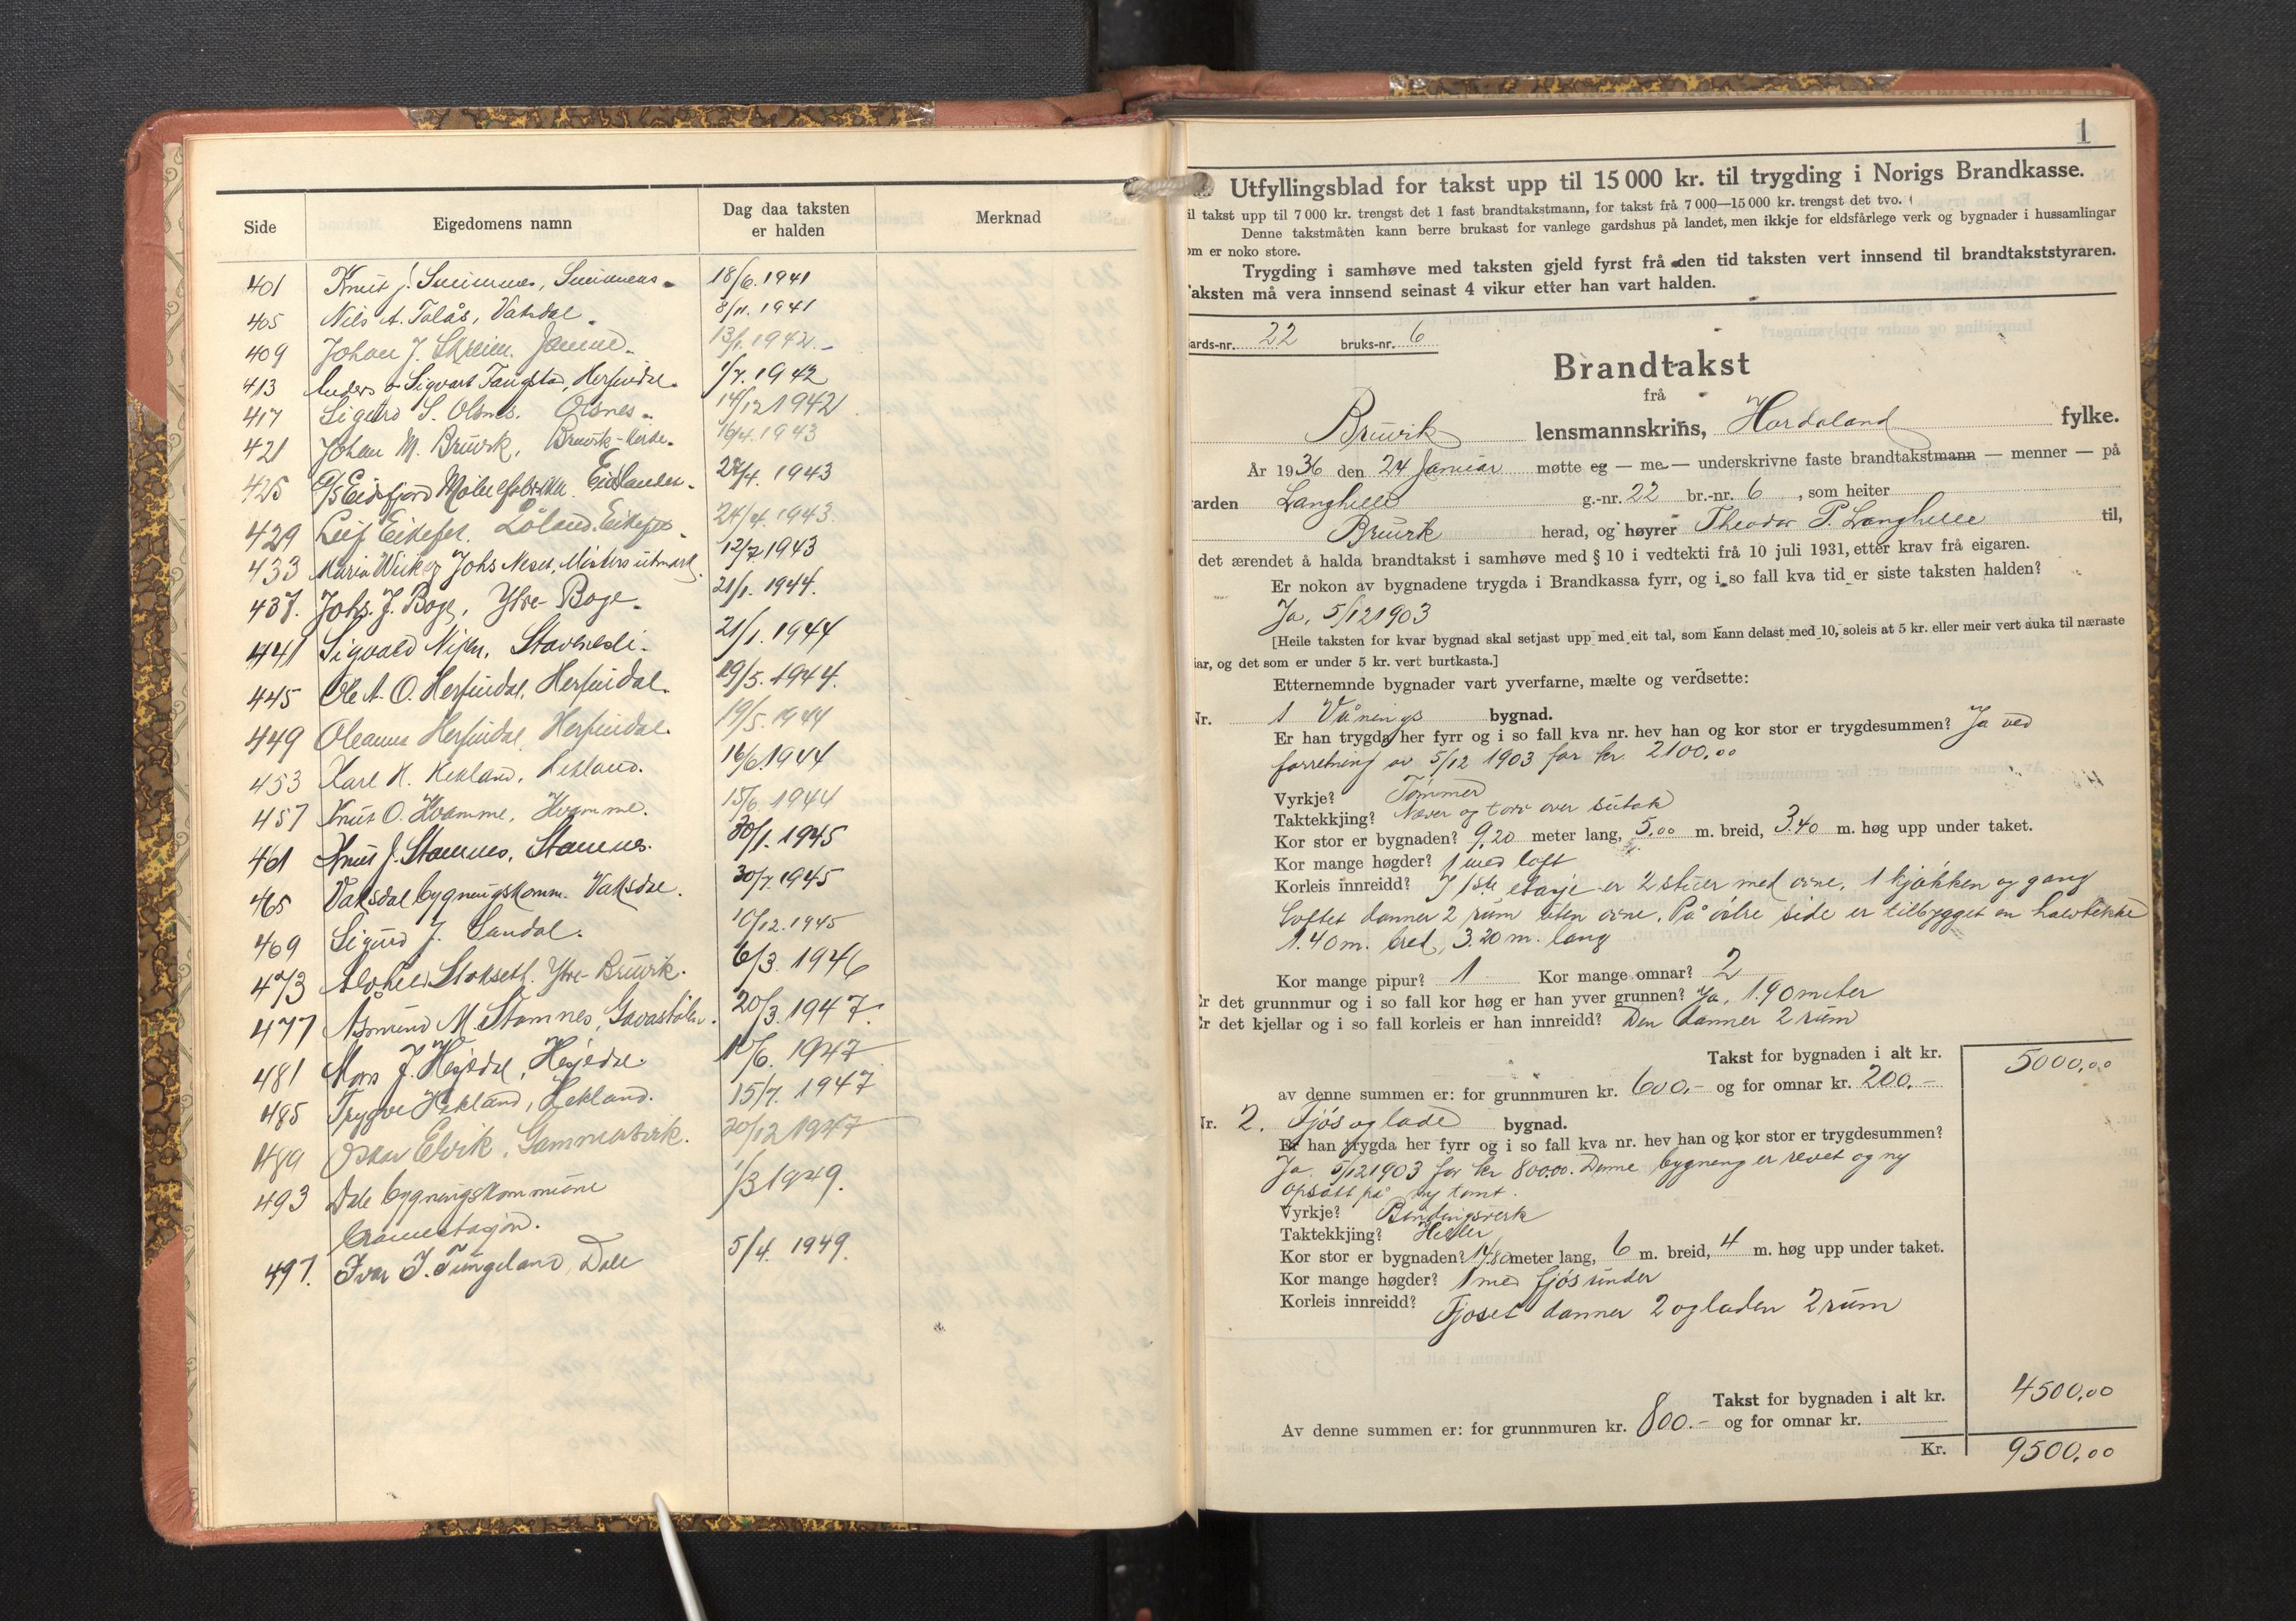 Side Eigedomens namn Dag daa taksten er halden Merknad
401 Knut J. Simmenes, Simmenes. 18/6. 1941
405 Nils A. Tolås, Vaksdal. 8/11. 1941
409 Johan J. Skreien. Jamne. 13/1. 1942.
413 Anders o Sigvart Tangstad, Herfindal. 1/7. 1942
417 Sigurd S. Olsnes. Olsnes. 14/12 1942
421 Johan M. Bruvik, Bruvik-Kirke. 16/4. 1943
425 A/S Eidsfjord Møbelfabrikk. Eidslandet. 27/4. 1943
429 Leif Eikefet. Löland. Eikefet. 24/4. 1943.
433 Maria Wiik og Johs Neset, Misters utmark. 12/7 1943
437. Johs. J. Boge, Ytre-Boge. 21/1. 1944.
441 Sigvald Nilsen, Stavenesli. 21/1. 1944
445 Ole A. O. Herfindal, Herfindal. 19/5. 1944.
449 Oleanna Herfindal, Herfindal. 19/5. 1944
453 Karl K. Hekland, Hekland. 16/6. 1944
457 Knut O. Hvamme, Hvamme. 15/6 1944
461 Knut J. Stamnes, Stamnes. 30/1. 1945
465 Vaksdal bygningskomm. Vaksdal. 30/7. 1945
469 Sigurd J. Sandal. 10/12. 1945
473 Stokseth. Ytre-Bruvik. 6/3. 1946
477 Asmund M. Stamnes, 20/3. 1947.
481 Mons J. Hesjedal, Hesjedal. 10/6. 1947
485 Trygve Hekland, Hekland. 15/7. 1947
489 Oskar Elvik, Gammersvik. 20/12 1947
493 Dale bygningskommune 1/3 1949.
brannstasjon.
497. Ivar I. Tungeland, Dale 5/4. 1949.
1
Utfyllingsblad for takst upp til 15 000 kr. til trygding i Norigs Brandkasse.
il takst upp til 7 000 kr. trengst det 1 fast brandtakstmann, for takst frå 7 000—15 000 kr. trengst det tvo.
Denne takstmåten kann berre brukast for vanlege gardshus på landet, men ikkje for eldsfårlege verk og bygnader i hussamlingar
om er noko store.
Trygding i samhøve med taksten gjeld fyrst frå den tid taksten vert innsend til brandtakststyraren.
aksten må vera innsend seinast 4 vikur etter han vart halden.
ards-nr. 22 bruks-nr. 6
Brandtakst
frå
Bruvik lensmannskrins, Hordaland fylke.
År 1936 den 24 Januar møtte eg — me — underskrivne faste brandtakstmann — menner — på
arden Langhelle g.-nr. 22 br.-nr. 6, som heiter
Bruvik herad, og høyrer Theodor P. Langhelle til,
det ærendet å halda brandtakst i samhøve med § 10 i vedtekti frå 10 juli 1931, etter krav frå eigaren.
Er nokon av bygnadene trygda i Brandkassa fyrr, og i so fall kva tid er siste taksten halden?
Ja, 5/12 1903
[Heile taksten for kvar bygnad skal setjast upp med eit tal, som kann delast med 10, soleis at 5 kr. eller meir vert auka til næraste
iar, og det som er under 5 kr. vert burtkasta.]
Etternemnde bygnader vart yverfarne, mælte og verdsette:
Nr. 1 Vånings bygnad.
Er han trygda her fyrr og i so fall kva nr. hev han og kor stor er trygdesummen? Ja ved
forretning av 5/12 1903 for kr. 2100,00
Vyrkje? Tømmer
Taktekkjing? Næver og torv over sutak
Kor stor er bygnaden? 9,20 meter lang, 5,00 m. breid, 3.40 m. høg upp under taket.
Kor mange høgder? 1 med loft
Korleis innreidd? I 1ste etasje er 2 stuer med ovne, 1 kjøkken og gang
Loftet danner 2 rum uten ovne. På østre side er tilbygget en halvtekke
1.40 m. bred, 3.20 m. lang
Kor mange pipur? 1 Kor mange omnar? 2
Er det grunnmur og i so fall kor høg er han yver grunnen? Ja, 1.90 meter
Er det kjellar og i so fall korleis er han innreidd? Den danner 2 rum
Takst for bygnaden i alt kr. 5000,00
av denne summen er: for grunnmuren kr. 600.- og for omnar kr. 200.-
Nr. 2. Fjøs og lade bygnad.
Er han trygda her fyrr og i so fall kva nr. hev han og kor stor er trygdesummen?
Ja. 5/12 1903 for kr 800.00. Denne bygning er revet og ny
opsatt på ny tomt.
Vyrkje? Bindingsverk
Taktekkjing? Heller
Kor stor er bygnaden? 14,80 meter lang, 6 m. breid, 4 m. høg upp under taket.
Kor mange høgder? 1 med fjøs under
Korleis innreidd? Fjøset danner 2 og laden 2 rum
Takst for bygnaden i alt kr. 4500,00
Av denne summen er: for grunnmuren kr. 800.- og for omnar kr.
Kr. 9500,00